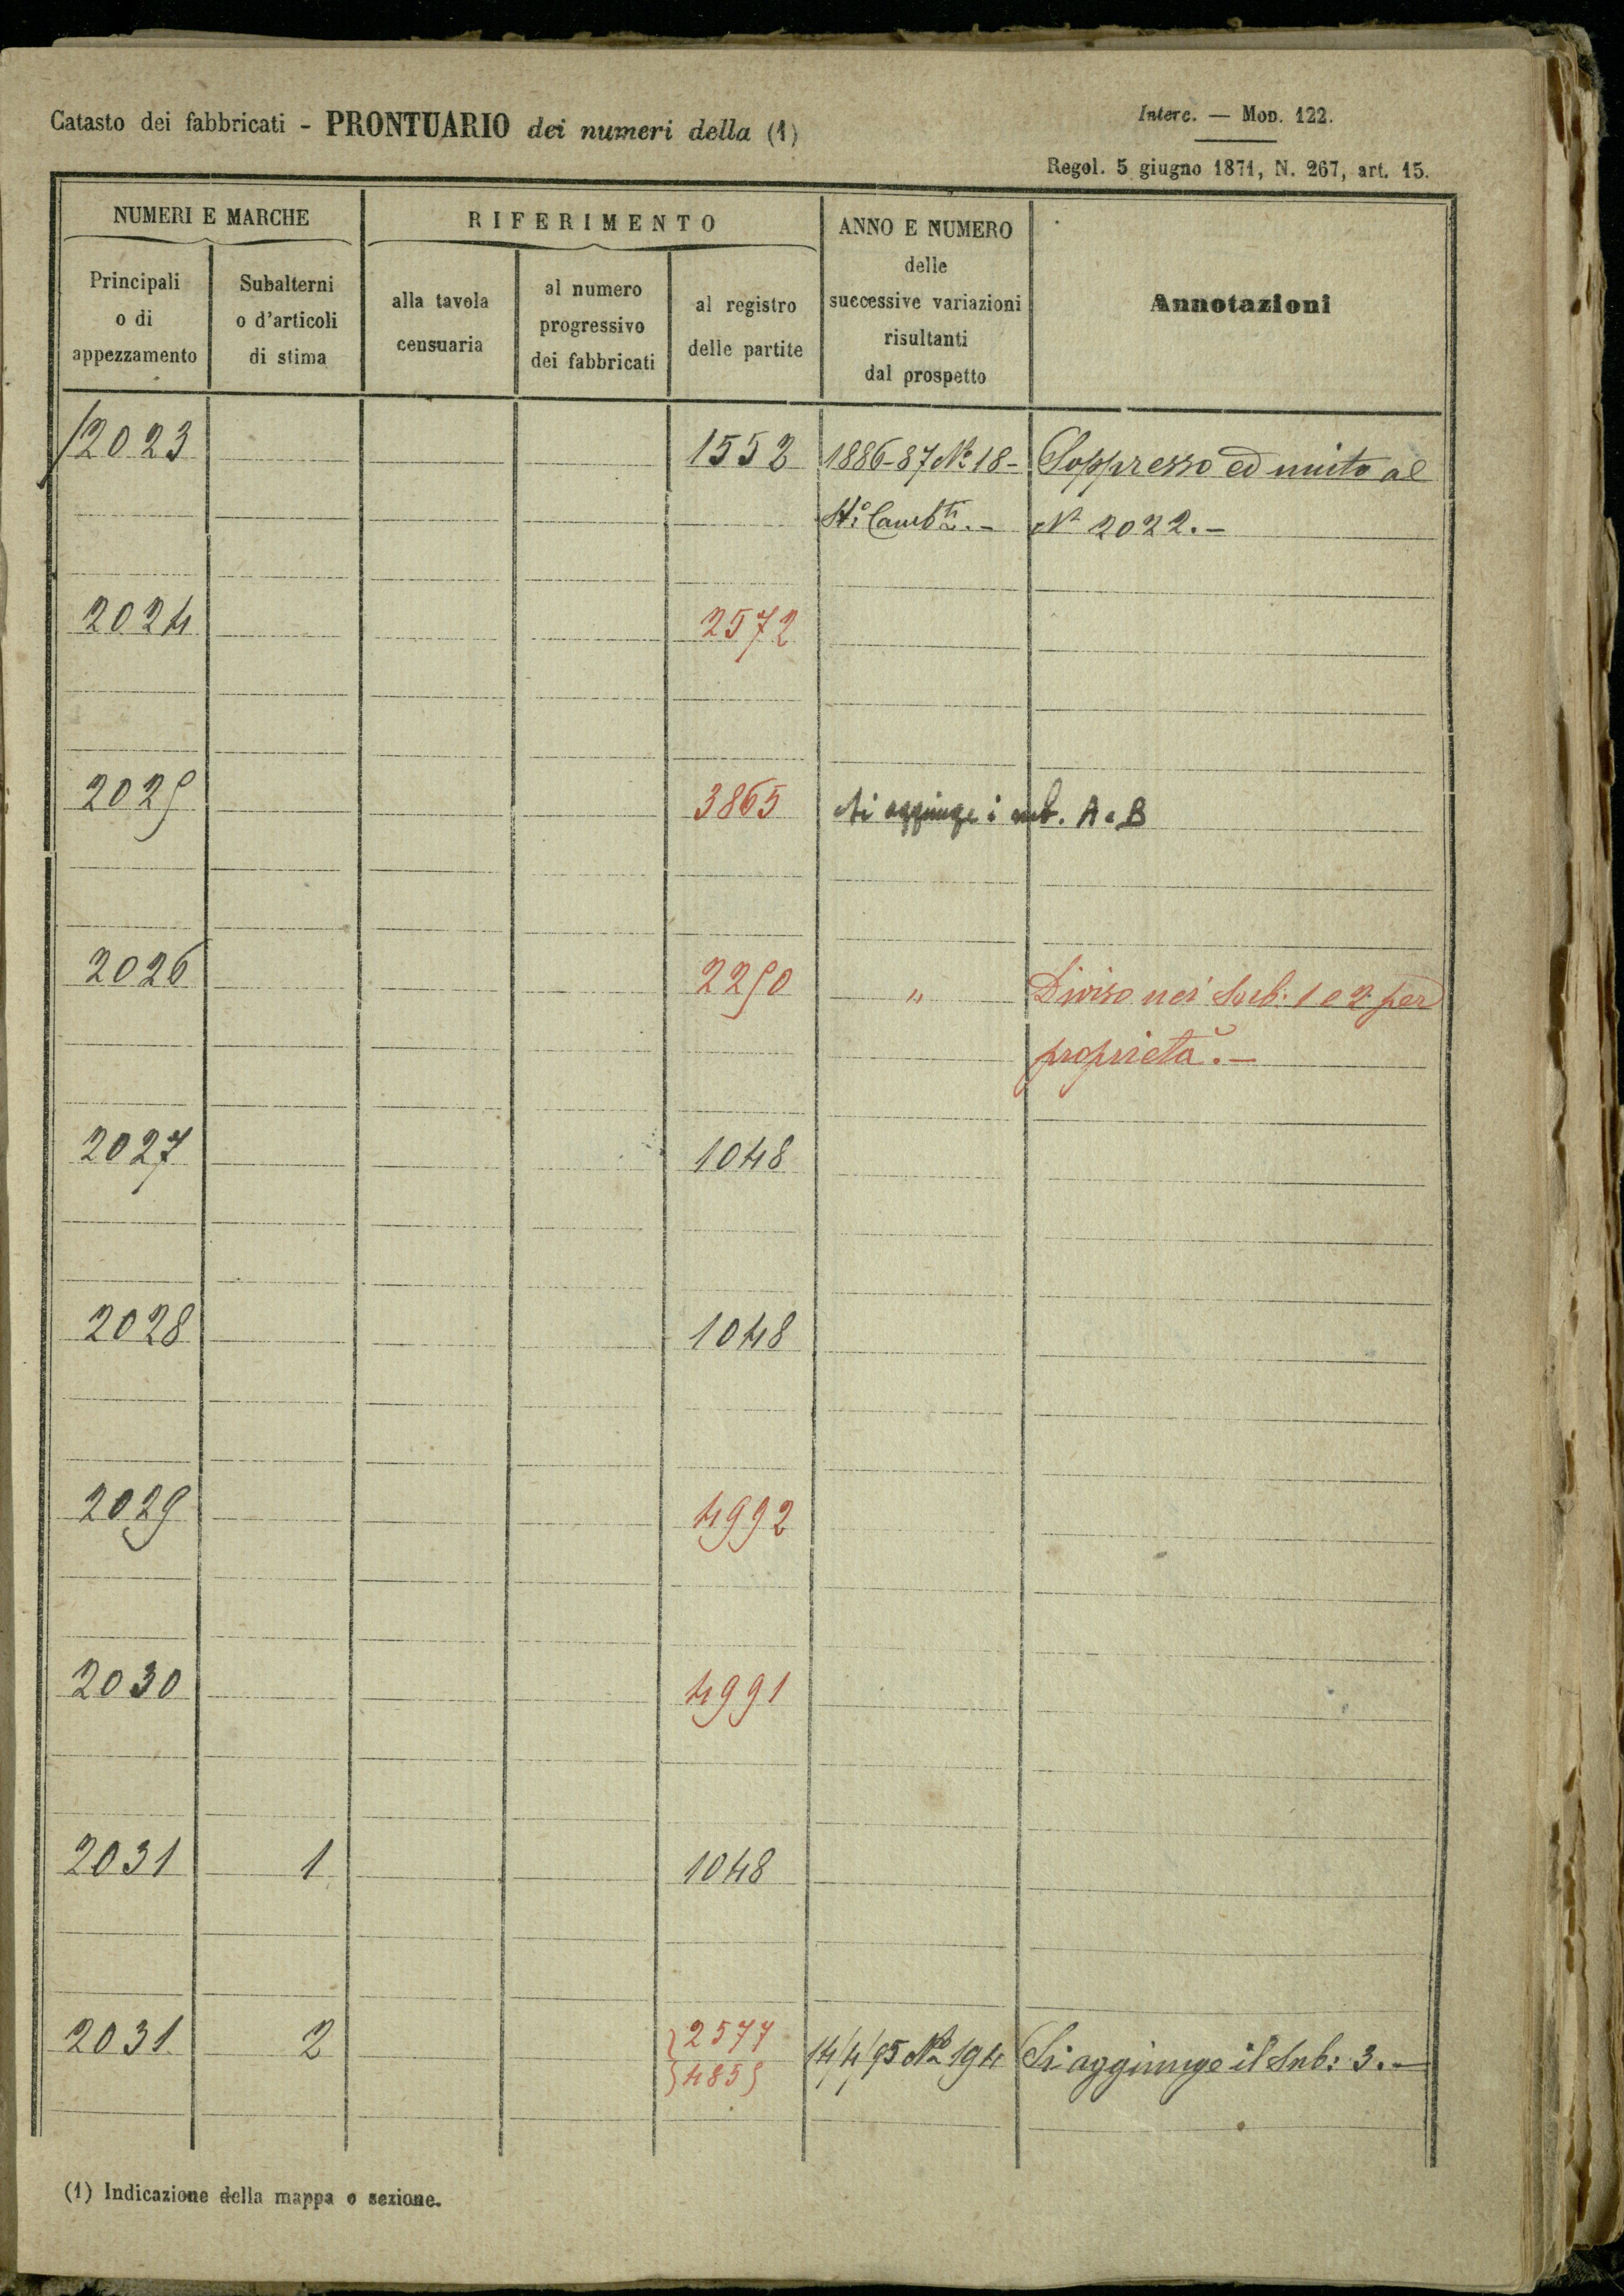 Catasto dei fabbricati - PRONTUARIO dei numeri della (1)
Interc. — Mod. 122.
Regol. 5 giugno 1871, N. 267, art. 15.
NUMERI E MARCHE
RIFERIMENTO
ANNO E NUMERO
delle
successive variazioni
risultanti
dal prospetto
Annotazioni
Principali
o di
appezzamento
Subalterni
o d'articoli
di stima
alla tavola
censuaria
al numero
progressivo
dei fabbricati
al registro
delle partite
2023 1552 1886-87 N° 18- Soppresso ed unito al
N° 2022.-
2024 2572
2025 3865 Si aggiunge i sub. A e B
2026 2250 " Diviso nei Sub. 1 e 2 per
proprietà.-
2027 1048
2028 1048
2029 4992
2030 4991
2031 1 1048
2031 2 2577 14/4/95 No 194 Si aggiunge il Sub: 3.-
4855
(1) Indicazione della mappa o sezione.